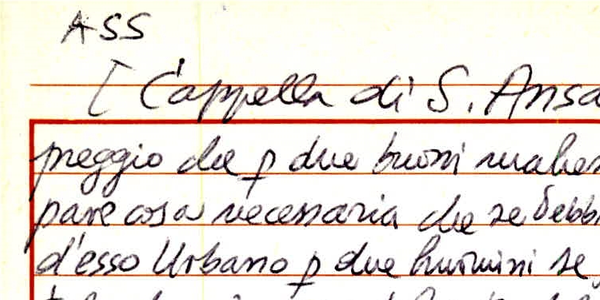 ASS
[ Cappella di S. Ansa
preggio che p due buoni
pare cosa necessaria che se debb
d'esso Urbano p due huomini se